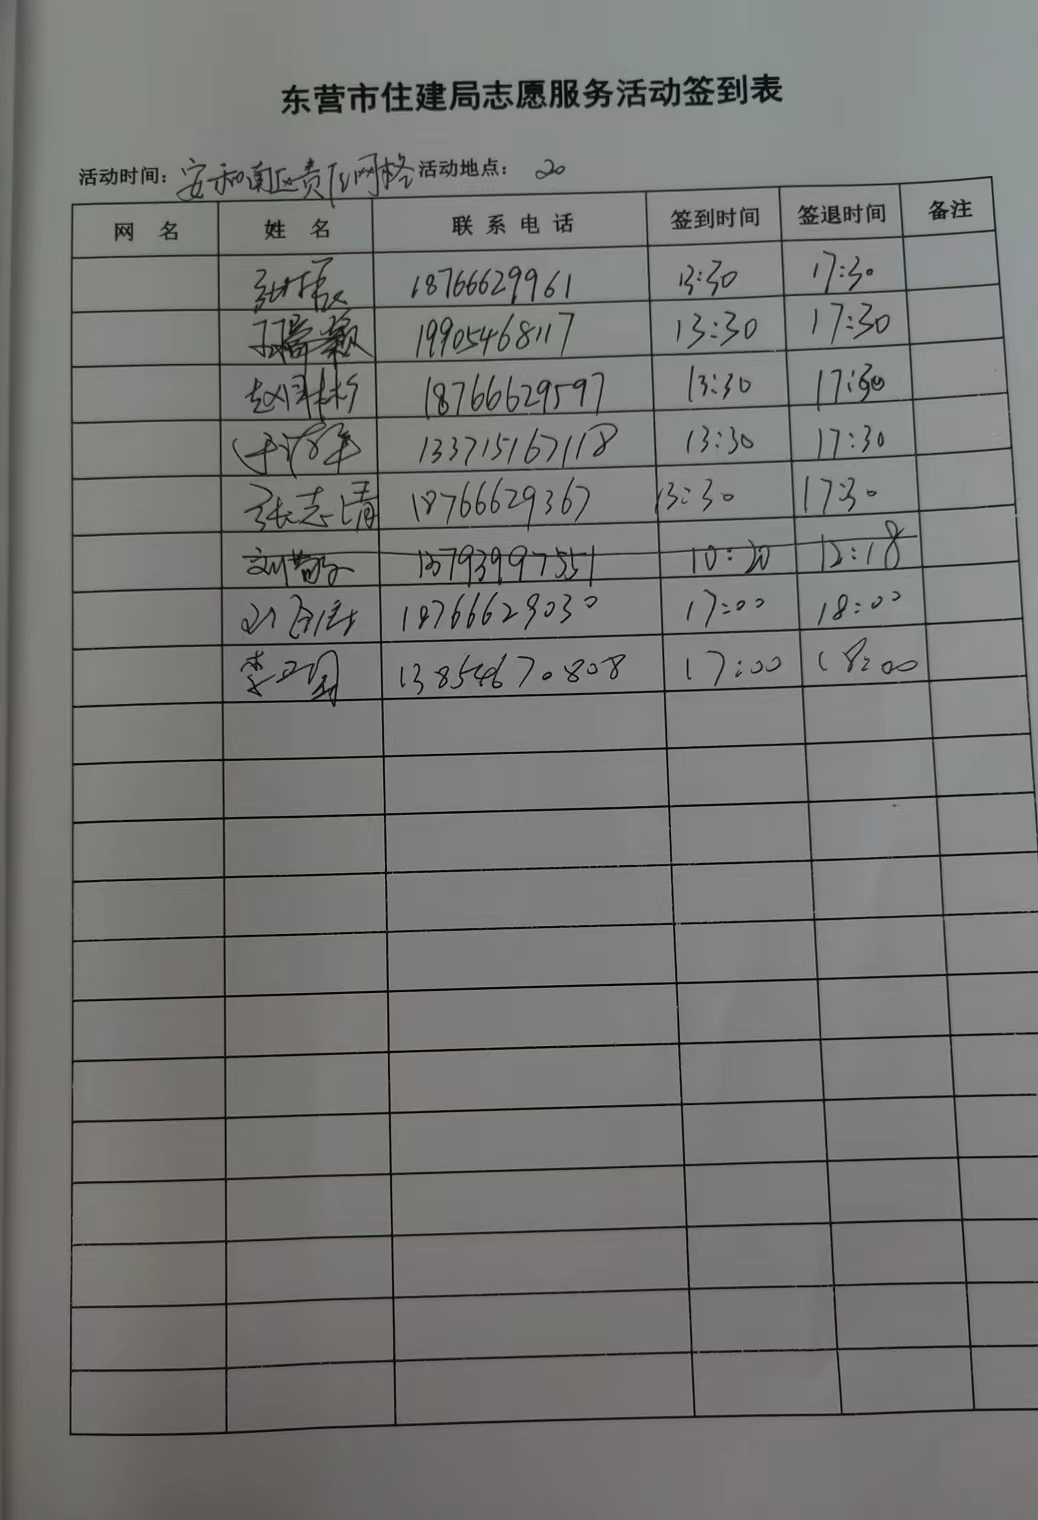 东营市住建局志愿服务活动签到表
活动时间：安和南区责任网格 活动地点： 20
网 名 姓 名 联 系 电 话 签到时间 签退时间 备注
18766629961 13:30 17:30
19905468117 13:30 17:30
18766629597 13:30 17:30
13371516718 13:30 17:30
张志清 18766629367 13:30 17:30
13793997551 10:20 12:18
18766629030 17:00 18:00
李 13854670808 17:00 18:00